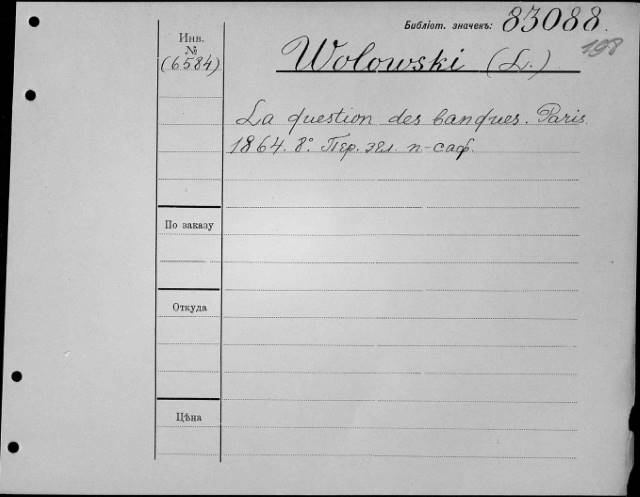 Библіот. значекъ: 83088.
198
Инв.
№
(6584)
Wolowski (L.)
La question des banques. Paris
1864. 8°. Пер. эгл. п-саф.
По заказу
Откуда
Цѣна